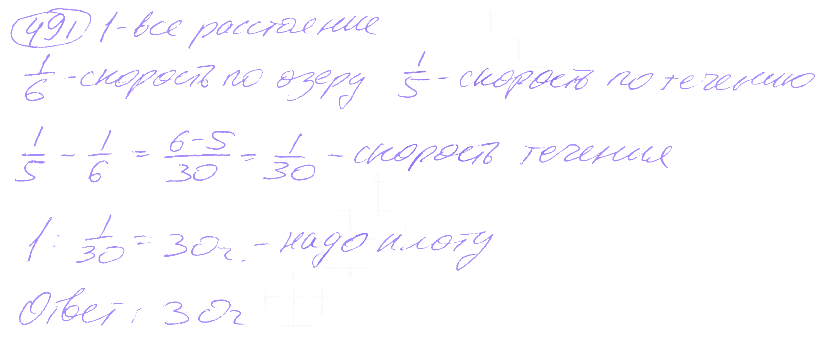 491 1-все расстояние
1/6 -скорость по озеру 1/5 - скорость по течению
1/5 - 1/6 = 6-5/30 = 1/30 - скорость течения
1 : 1/30 = 30ч. - надо плоту
Ответ: 30ч